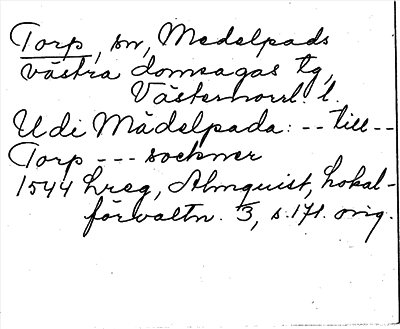 Torp, sn, Medelpads
västra domsagas tg,
Västernorrl. l.
Udi Mådelpada: -- till --
Torp --- sockner
1544 Lreg, Almquist, Lokal-
förvaltn. 3, s. 171. orig.